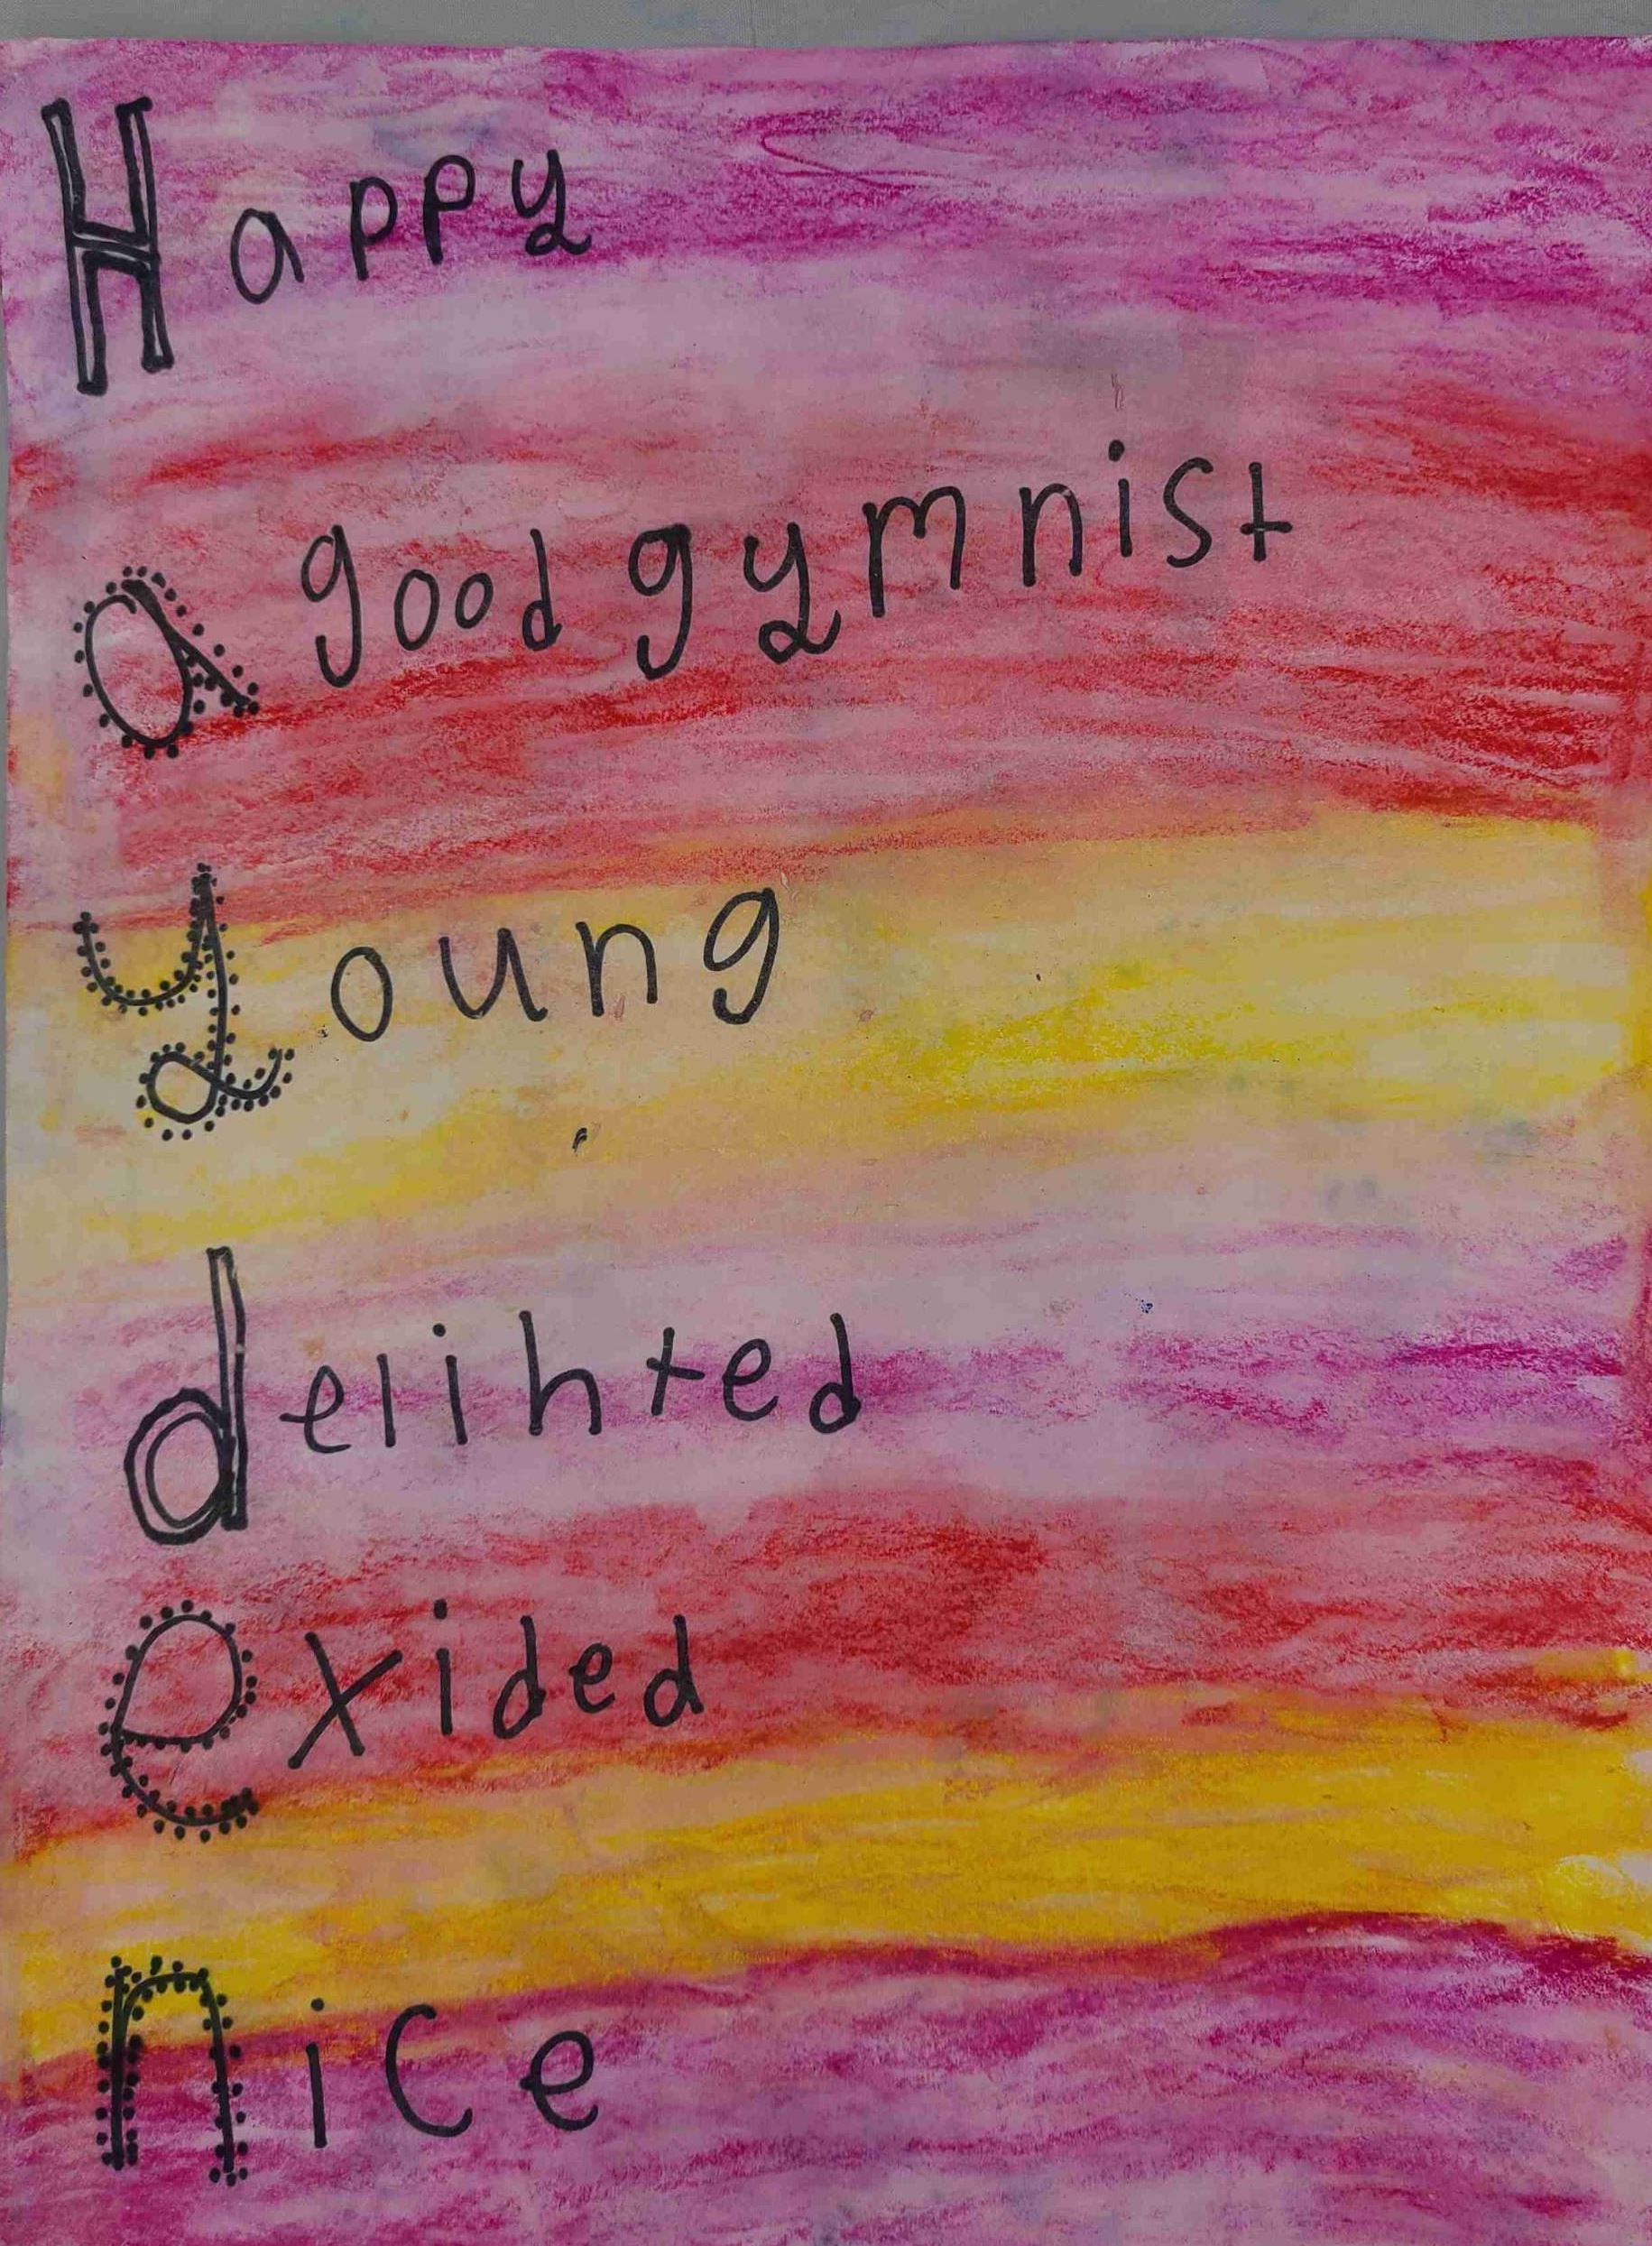 Happy
a good gymnist
young
delihted
exided
nice